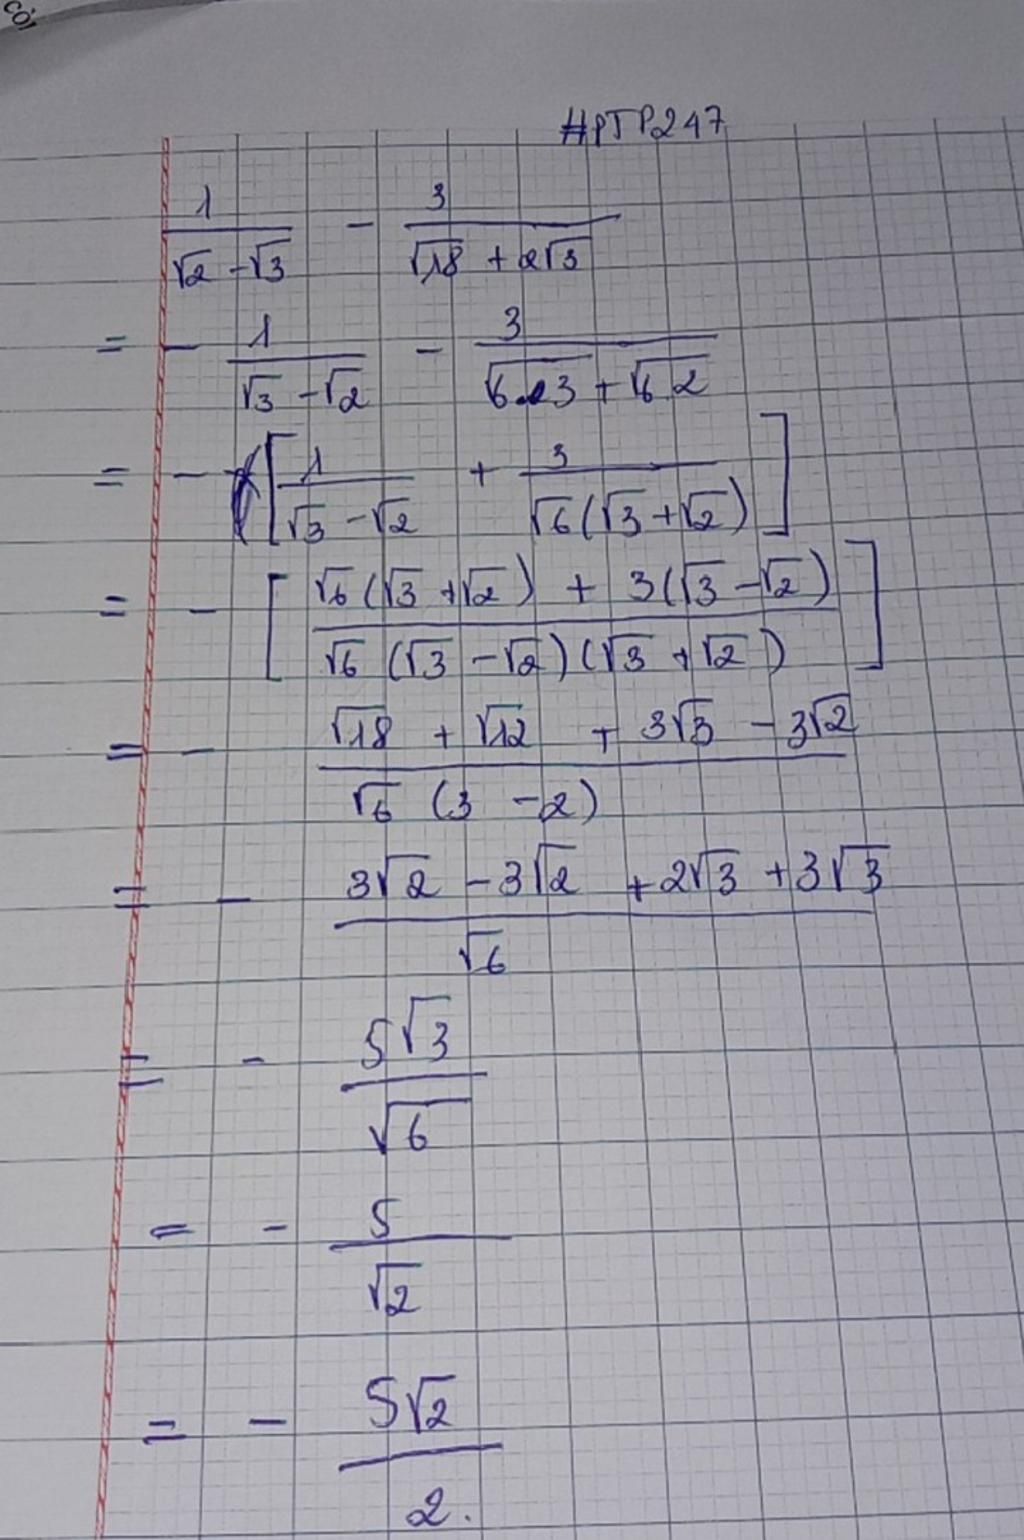 #PTP247
1/(√2 - √3) - 3/(√18 + 2√3)
= - 1/(√3 - √2) - 3/(√6.3 + √6.2)
= - [1/(√3 - √2) + 3/(√6(√3 + √2))]
= - [(√6(√3 + √2) + 3(√3 - √2))/(√6(√3 - √2)(√3 + √2))]
= - (√18 + √12 + 3√3 - 3√2)/(√6(3 - 2))
= - (3√2 - 3√2 + 2√3 + 3√3)/√6
= - 5√3/√6
= - 5/√2
= - 5√2/2.